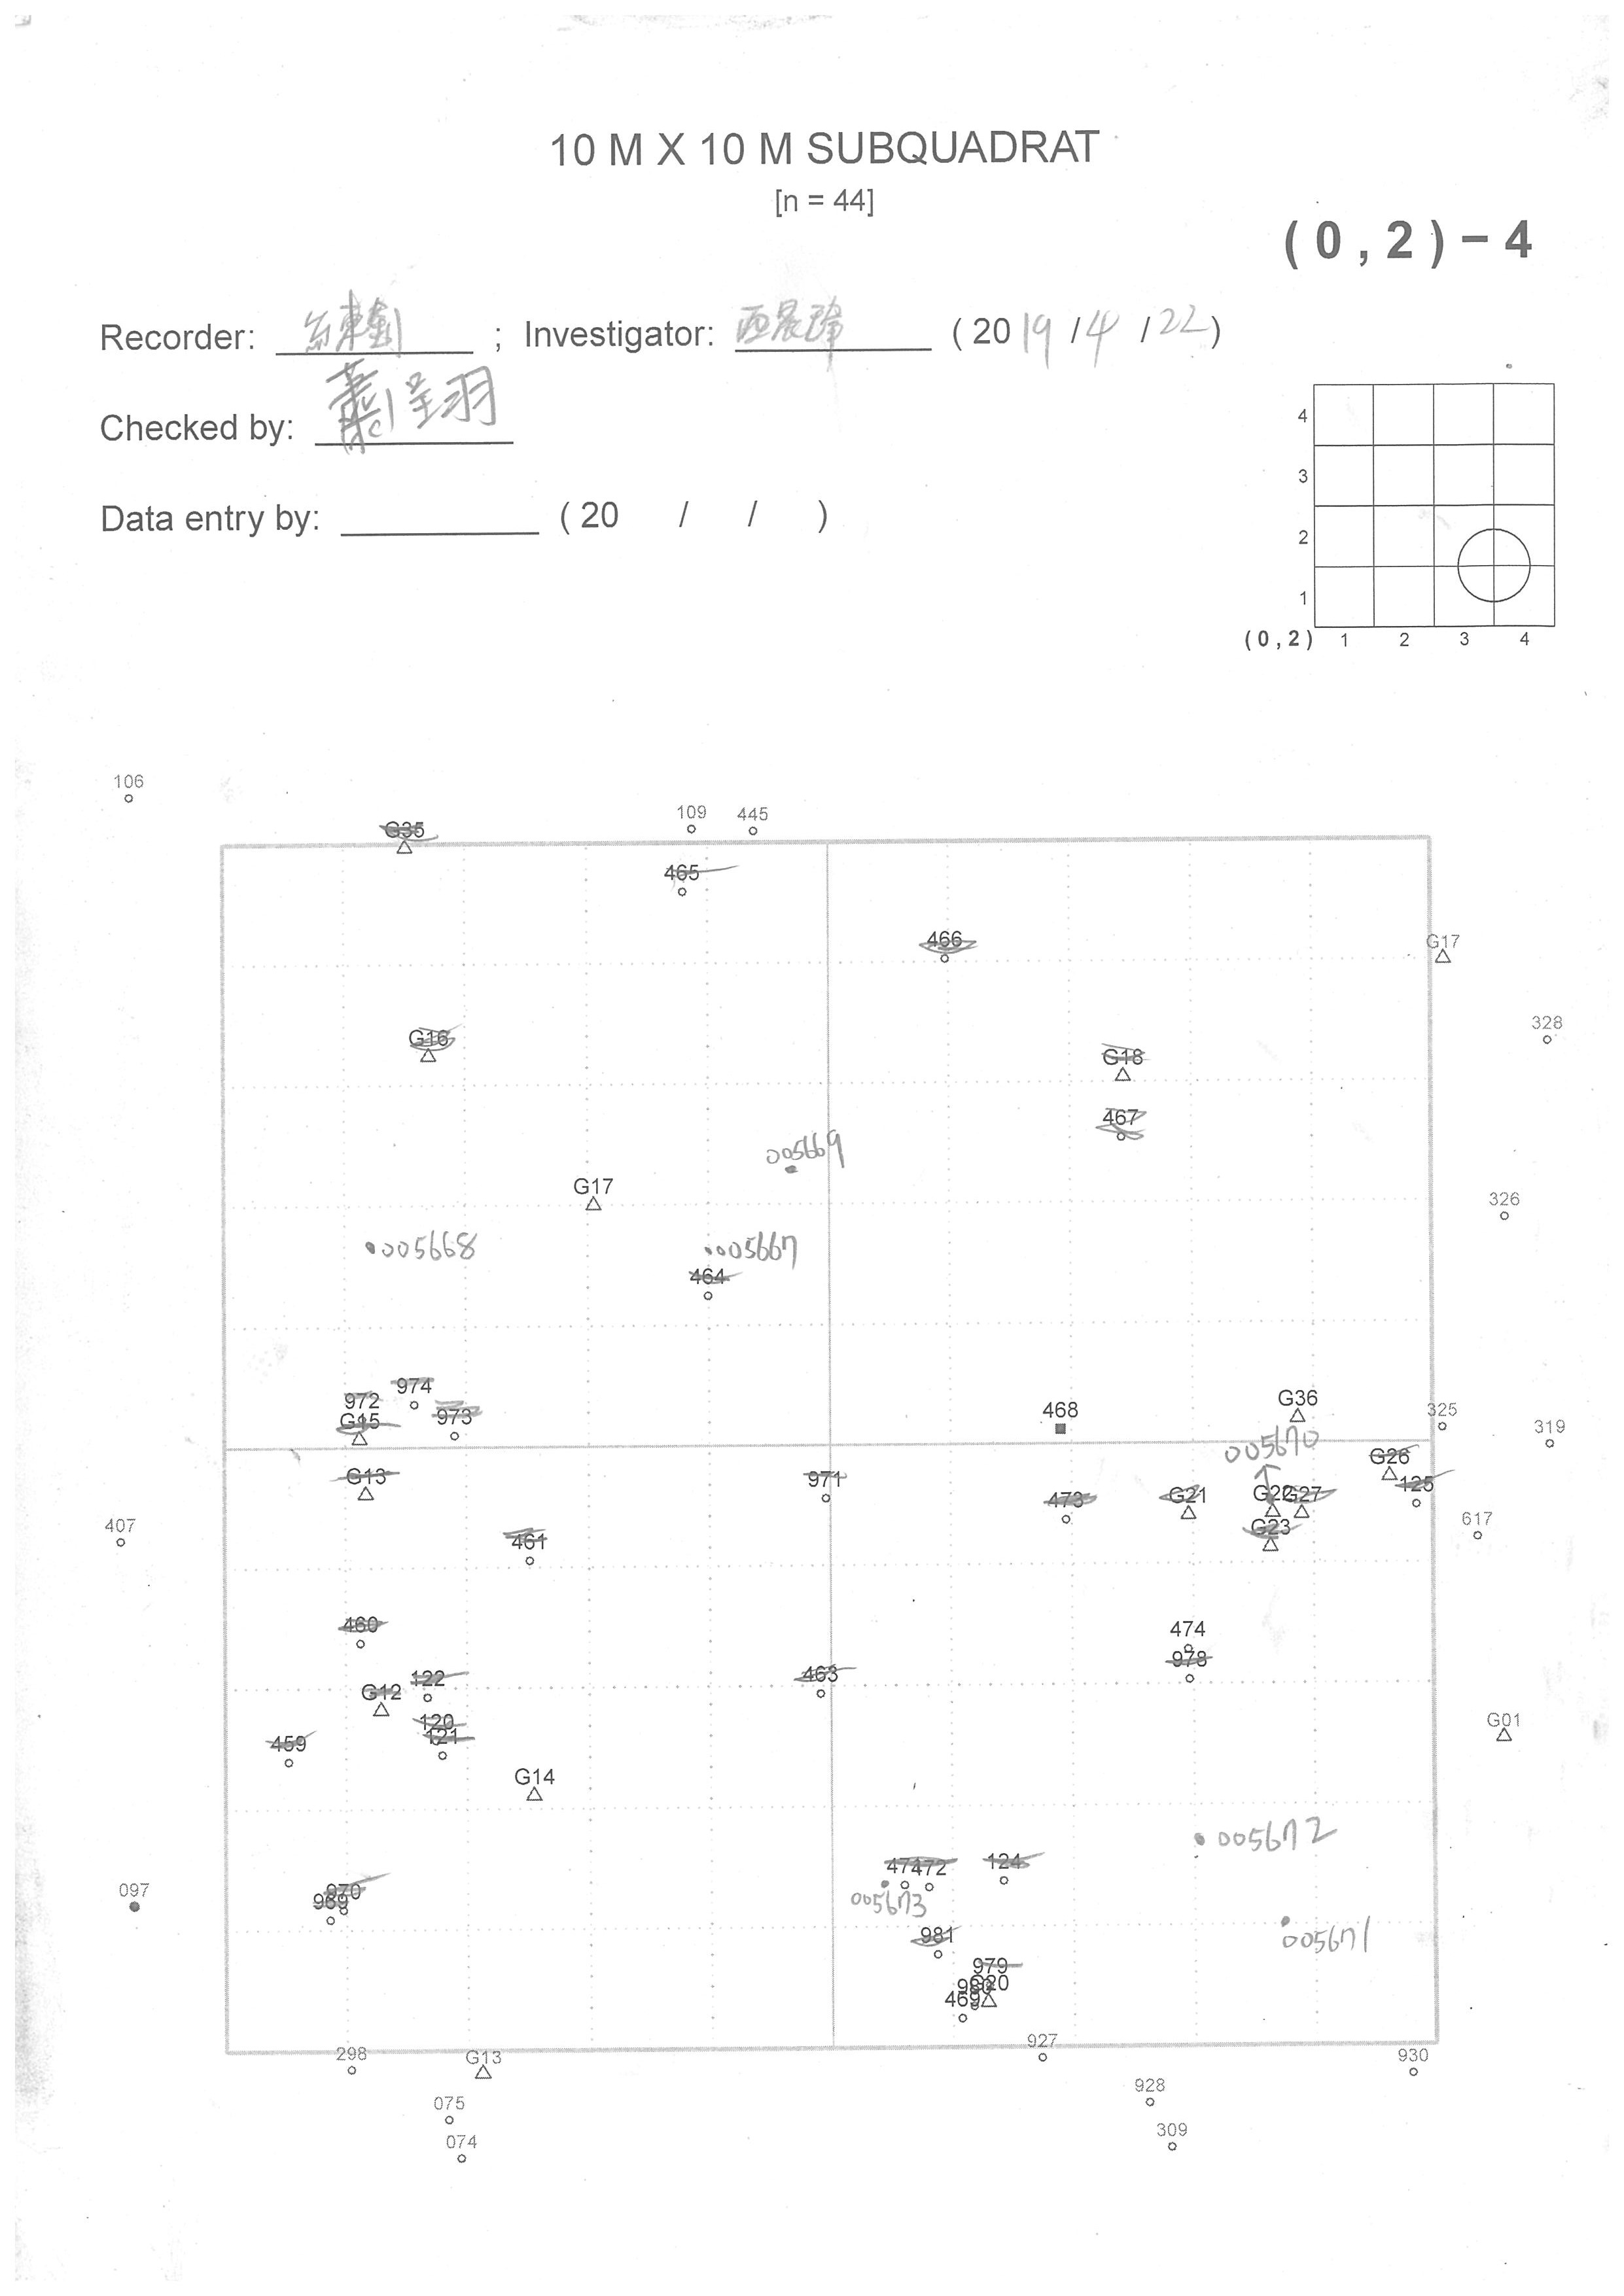 10 M X 10 M SUBQUADRAT
[n = 44]
( 0 , 2 ) - 4
Recorder: ; Investigator: ( 20 19 / 4 / 22 )
Checked by: 蕭呈羽
Data entry by: ( 20 / / )
4
3
2
1
( 0 , 2 ) 1 2 3 4
106
G35 109 445
465
466 G17
G16 328
G18
467
005669
G17 326
005668 005667
464
974
972 973
G15 468 G36 325 319
005670
G13 971 G26
473 G21 G22 G27 125
407 461 G23 617
460 474
122 463 978
G12
120 G01
459 121
G14
005672
472 124
097 970
969 005673
981 005671
979
980 G20
469
298 G13 927 930
075 928
074 309